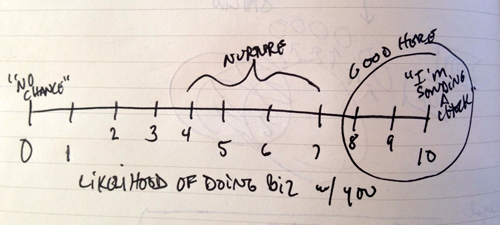 NURTURE
GOOD HERE
"NO
CHANCE"
"I'M
SENDING
A
CHECK"
0 1 2 3 4 5 6 7 8 9 10
LIKELIHOOD OF DOING BIZ w/ YOU